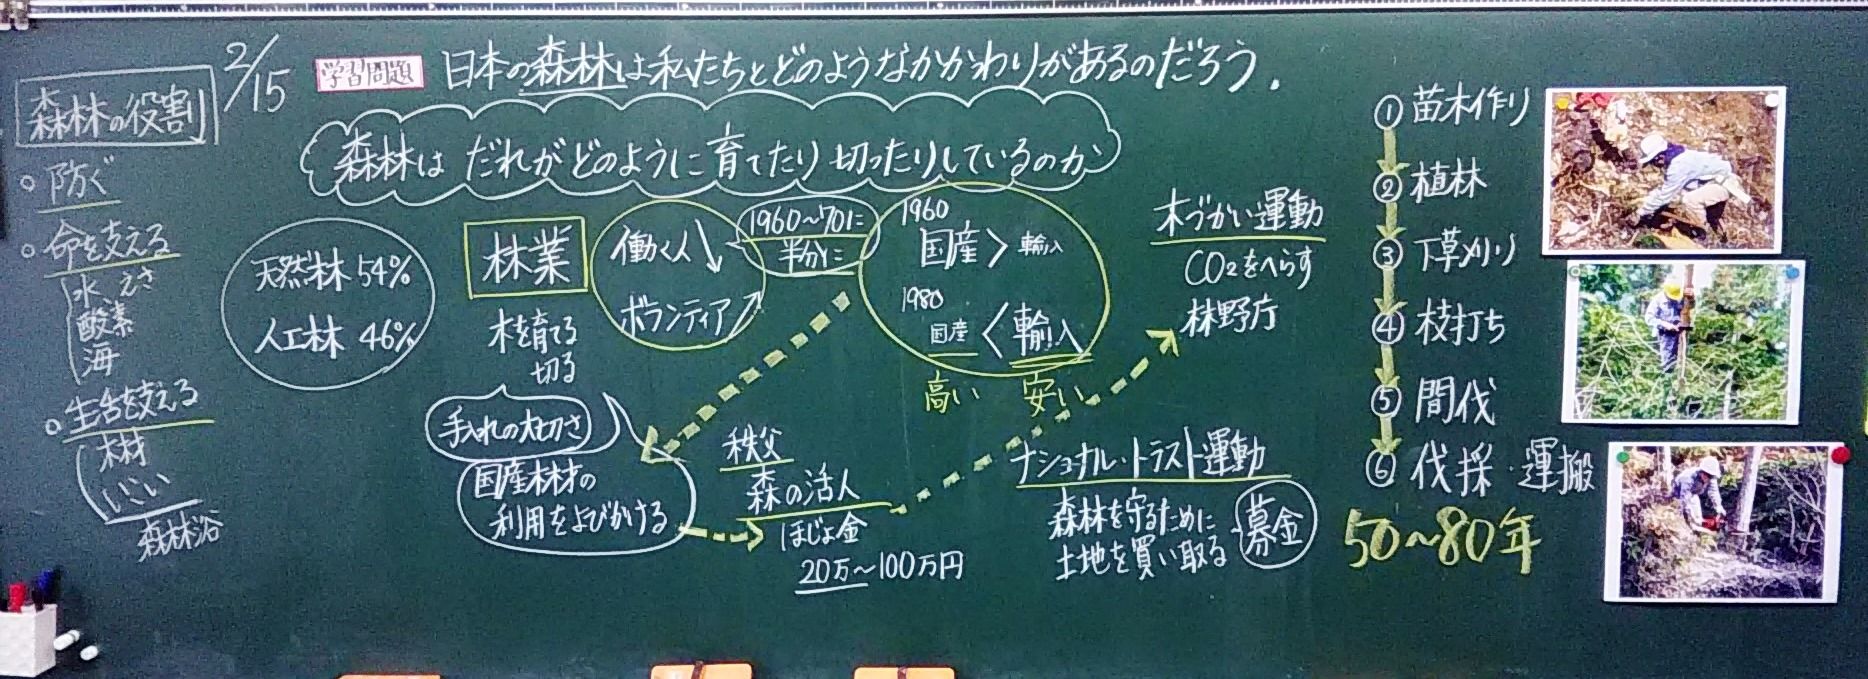 2/15
学習問題
日本の森林は私たちとどのようなかかわりがあるのだろう。
森林の役割
○防ぐ
○命を支える
水 えさ
酸素
海
○生活を支える
木材
いこい
森林浴
森林は だれがどのように育てたり切ったりしているのか
天然林 54%
人工林 46%
林業
木を育てる
切る
手入れの大切さ
国産木材の
利用をよびかける
働く人↘
ボランティア↗
1960〜'70に
半分に
1960
国産 > 輸入
1980
国産 < 輸入
高い 安い
秩父
森の活人
ほじょ金
20万〜100万円
木づかい運動
CO2をへらす
林野庁
ナショナル・トラスト運動
森林を守るために
土地を買い取る
募金
①苗木作り
②植林
③下草刈り
④枝打ち
⑤間伐
⑥伐採・運搬
50〜80年